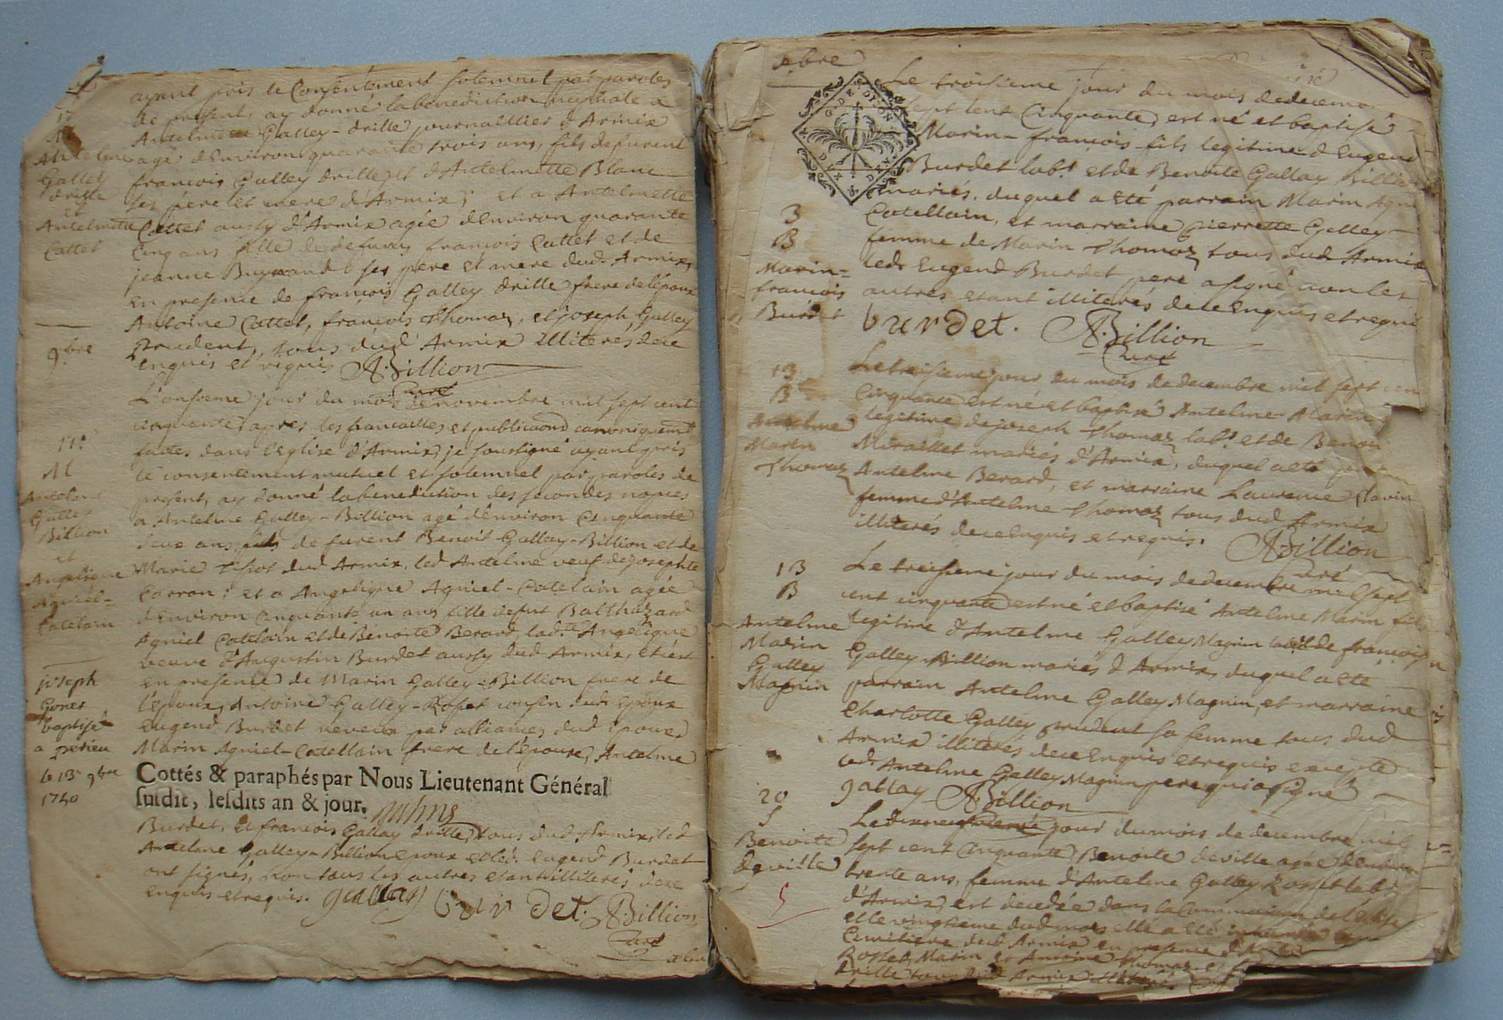 ayant pris le Consentement solemnel par paroles
de present, ay donné la benediction nuptiale a
Antelme Galley-drille journaillier d'Armix
agé d'environ quarante trois ans, fils de furent
françois Galley drille et d'Antelmette Blanc
ses pere et mere d'Armix; et a Antelmette
Cattet aussy d'Armix agée d'environ quarante
cinq ans fille de defunt françois Cattet et de
jeanne ses pere et mere dud. Armix,
en presence de françois Galley drille frere de l'époux
Antoine Cattet, françois Thomaz, et joseph Galley
prudent, tous dud Armix illiteres de ce
enquis et requis ABillion
Curé
M
Antelme
Galley
drille
et
Antelmette
Cattet
9bre
L'onsieme jour du mois de novembre mil sept cent
cinquante apres les bancailles et publications canoniquement
faites dans l'eglise d'Armix je soussigné ayant pris
le consentement mutuel et solemnel par paroles de
present, ay donné la benediction des secondes nopces
a Antelme Galley-Billion agé d'environ cinquante
deux ans fils de furent Benoit Gallay-Billion et de
Marie dud Armix, led Antelme veuf de josephte
Carron; et a Angelique Agniel-Catelain agée
d'environ cinquante un ans fille de fut Balthazard
Agniel Catelain et de Benoite Berard, ladte Angelique
veuve d'Augustin Burdet aussy dud Armix, et c'est
en presence de Marin Galley-Billion frere de
l'époux, Antoine Galley-Rosset cousin dud Epoux
Eugend Burdet neveu par alliance, dud Epoux,
Marin Agniel-Catellain frere de l'épouse, Antelme
11e
M
Antelme
Galley
Billion
et
Angelique
Agniel-
Catelain
joseph
Gonet
baptisé
a
le 13e 9bre
1740
Cottés & paraphés par Nous Lieutenant Général
susdit, lesdits an & jour.
Burdet, et françois Gallay drille, tous dud Armix, led
Antelme Galley-Billion epoux et led. Eugend Burdet
ont signés, non tous les autres etant illiterés de ce
enquis et requis. gallay burdet. ABillion
Curé
xbre
Le troisieme jour du mois de decembre
sept cent cinquante, est né et baptisé
Marin-françois fils legitime d'Eugend
Burdet labr et de Benoite Gallay Billion
mariés, duquel a eté parrain Marin Agniel
Catellain, et marraine Pierrette Galley
femme de Marin Thomaz tous dud Armix
led. Eugend Burdet pere a signé non les
autres etant illiteres de ce enquis et requis
burdet. ABillion
Curé
3
B
Marin-
françois
Burdet
GEN DE DIJON
Le treisieme jour du mois de decembre mil sept cent
cinquante est né et baptisé Antelme-Marin
legitime de joseph Thomaz labr et de Benoite
Miraillet mariés d'Armix, duquel a eté parrain
Antelme Berard, et marraine Laurence Clavin
femme d'Antelme Thomaz tous dud Armix
illiteres de ce enquis et requis. ABillion
Curé
13
B
Antelme
Marin
Thomaz
Le treisieme jour du mois de decembre mil sept
cent cinquante est né et baptisé Antelme Marin fils
legitime d'Antelme Galley Magnin labr et de françoise
Galley-Billion mariés d'Armix, duquel a eté
parrain Antelme Galley Magnin, et marraine
Charlotte Galley prudent sa femme tous dud
Armix illiteres de ce enquis et requis excepté
led. Antelme Galley Magnin pere qui a signé
gallay ABillion
13
B
Antelme
Marin
Galley
Magnin
Le jour du mois de decembre mil
sept cent cinquante, Benoite deville agée d'environ
trente ans, femme d'Antelme Galley Rosset labr
d'Armix, est decedée dans la Communion de l'eglise
et le vingtieme dud mois elle a eté inhumée
Cemitiere dud Armix en presence
Rosset, Marin et Antoine Thomaz
drille tous dud Armix
20
S
Benoite
deville
5